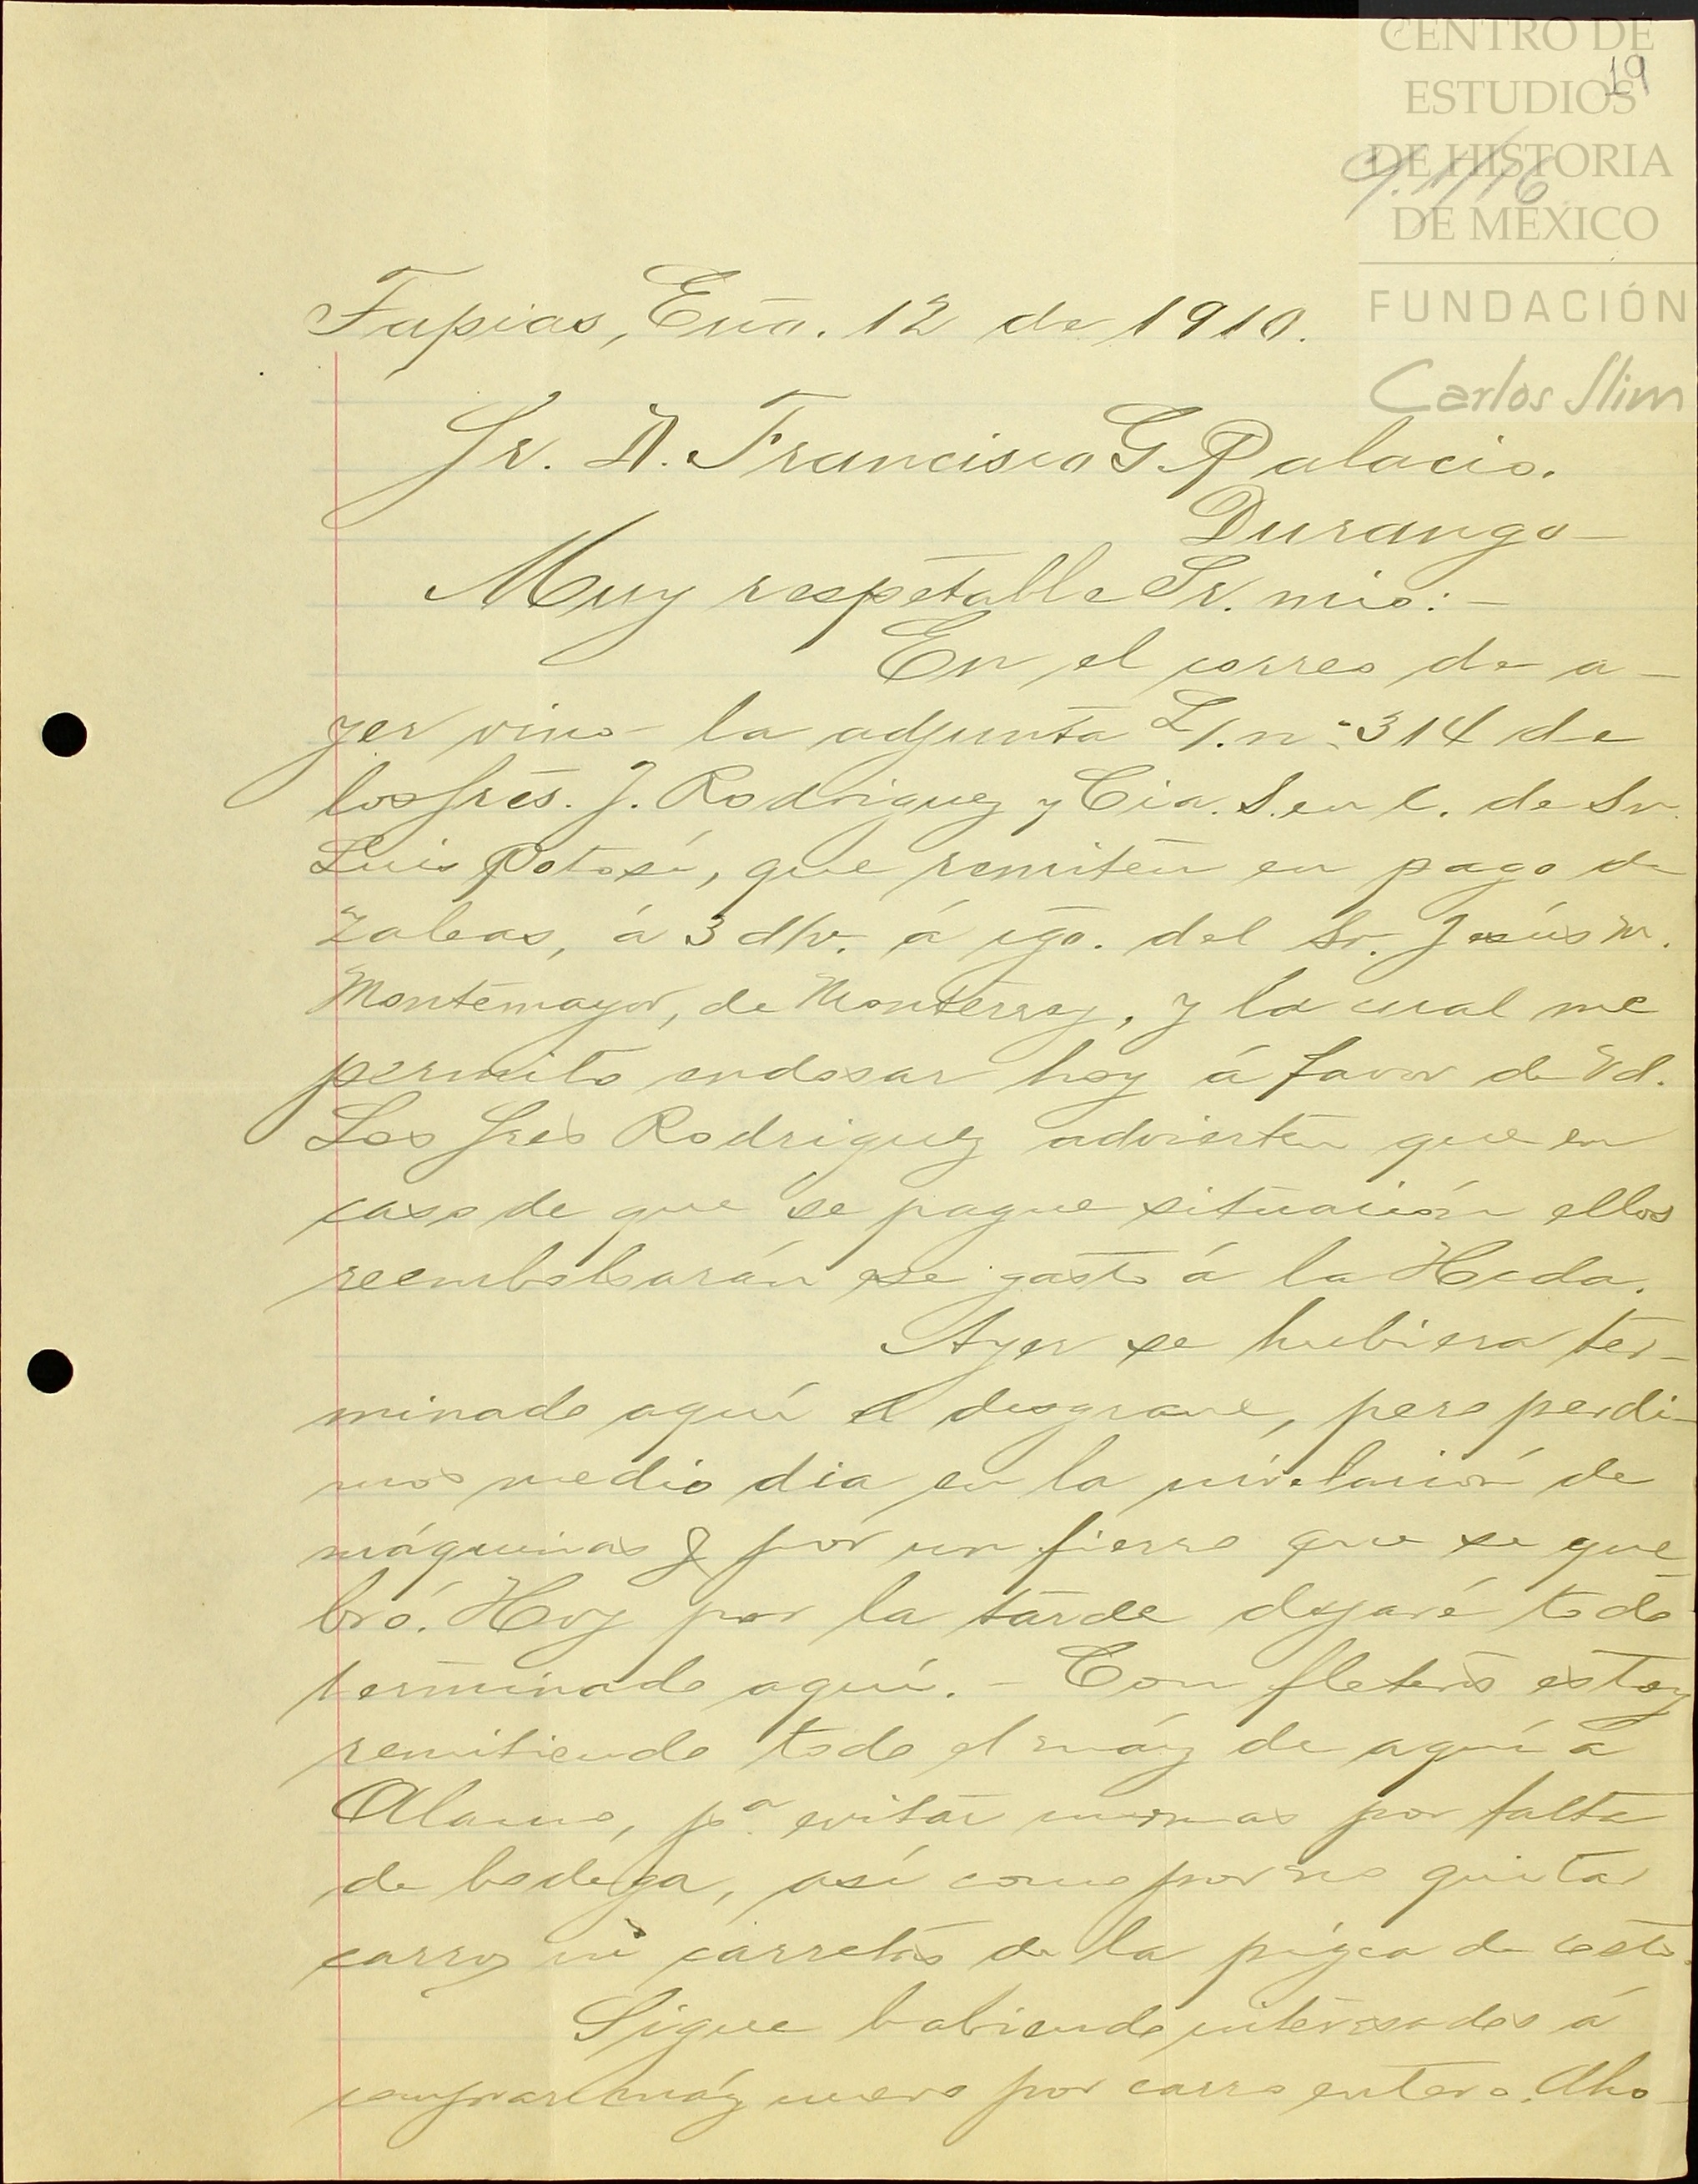 CENTRO DE
ESTUDIOS
DE HISTORIA
DE MÉXICO
FUNDACIÓN
Carlos Slim
19
Tapias, Eno. 12 de 1910.
Sr. D. Francisco G. Palacio.
Durango-
Muy respetable Sr. mio:-
En el correo de a-
yer vino la adjunta L/. n° 314 de
los Sres. J. Rodriguez y Cia. S. en C. de Sn.
Luis Potosí, que remiten en pago de
Zaleas, á 3 d/v. á cgo. del Sr. Jesús M.
Montemayor, de Monterrey, y la cual me
permito endosar hoy á favor de Vd.
Los Sres Rodriguez advierten que en
caso de que se pague situación ellos
reembolsarán ese gasto á la Hcda.
Ayer se hubiera ter-
minado aquí el desgrane, pero perdi-
mos medio dia en la nivelación de
máquinas y por un fierro que se que
bró. Hoy por la tarde dejaré todo
terminado aquí. - Con fleteros estoy
remitiendo todo el maíz de aquí á
Alamo, pa. evitar mermas por falta
de bodega, así como por no quitar
carros ni carretas de la pizca de este.
Sigue habiendo interesados á
comprar maíz nuevo por carro entero. Aho-